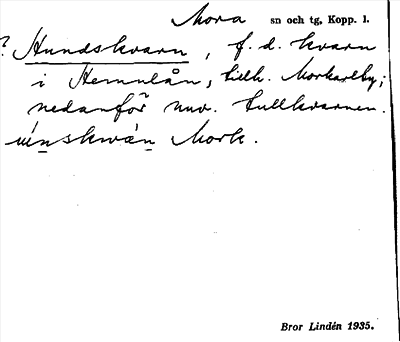 Mora sn och tg, Kopp. l.
? Hundskvarn, f. d. kvarn
i Hemulån, tillh. Morkarlby;
nedanför nuv. tullkvarnen.
únskwàn Mork.
Bror Lindén 1935.